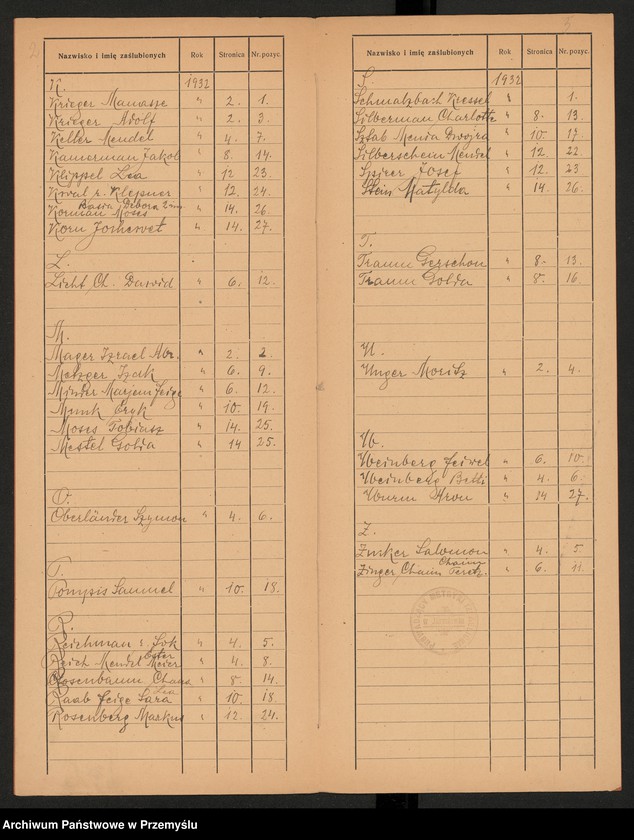 2
Nazwisko i imię zaślubionych Rok Stronica Nr. pozyc.
K. 1932
Krieger Manasse " 2. 1.
Krieger Adolf " 2. 3.
Keller Mendel " 4. 7.
Kamerman Jakob " 8. 14.
Klippel Lea " 12 23.
Kowal r. Klepner " 12. 24.
Basia Debora 2 im.
Korman Moses " 14. 26.
Korn Jochewet " 14. 27.
L.
Licht Ch. Dawid " 6. 12.
M.
Mager Izrael Abr. " 2. 2.
Metzger Izak " 6. 9.
Minder Marjem Feige " 6. 12.
Munk Eryk " 10. 19.
Moses Tobiasz " 14. 25.
Mestel Golda " 14 25.
O.
Oberländer Szymon " 4. 6.
P.
Pompis Samuel " 10. 18.
R.
Reichman " 4. 5.
Ester
Reich Mendel Meier " 4. 8.
Rosenbaum Chana " 8. 14.
Lea
Raab Feige Sara " 10. 18.
Rosenberg Markus " 12. 24.
Nazwisko i imię zaślubionych Rok Stronica Nr. pozyc.
S. 1932
Schmalzbach Kiessel " 1.
Silberman Charlotte " 8. 13.
Sztab Menda Dwojra " 10. 17
Silberschein Mendel " 12. 22
Spirer Josef " 12. 23
Stein Matylda " 14. 26.
T.
Traum Gerschon " 8. 13.
Traum Golda " 8. 16.
U.
Unger Moritz " 2. 4.
W.
Weinberg Feiwel " 6. 10.
Weinberg Betti " 4. 6.
Wurm Aron " 14 27.
Z.
Zucker Salomon " 4. 5.
Chaim
Zinger Chaim Peretz. " 6. 11.
Archiwum Państwowe w Przemyślu